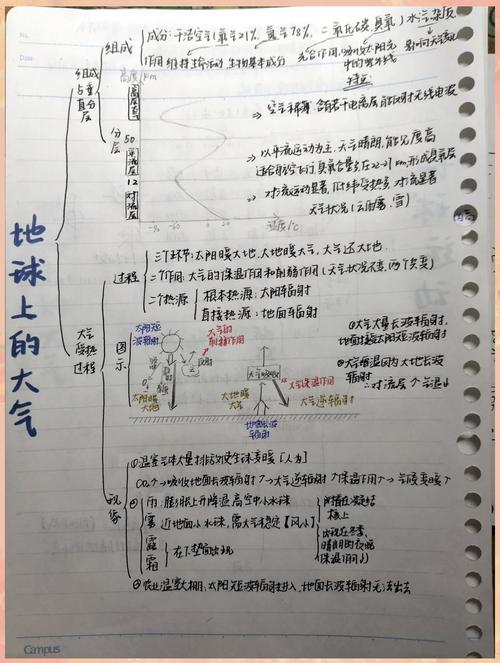 地球上的大气
组成与垂直分层
组成
成分:干洁空气(氧气21%,氮气78%,二氧化碳,臭氧)水汽杂质
作用 维持生命活动 生物基本成分 光合作用,吸收太阳光中的紫外线 影响天气变化
特点:
分层
高度/km
高层大气
50
平流层
12
对流层
温度/℃
⇒ 空气稀薄,含若干电离层,能反射无线电波
⇒ 以平流运动为主,天气晴朗,能见度高
适合航空飞行,臭氧含量多,在22-27km,形成臭氧层
⇒ 对流运动显著,低纬受热多,对流显著
天气状况(云雨雾、雪)
大气受热过程
过程
三个环节:太阳暖大地,大地暖大气,大气还大地.
二个作用:大气的保温作用和削弱作用
二个热源
根本热源:太阳辐射
直接热源:地面辐射
图示
太阳短波辐射
大气的削弱作用
太阳暖大地
大气吸收
大地暖大气
地面长波辐射
大气保温作用
大气逆辐射
①大气大量长波辐射,
②大气增温因为大地长波辐射
∴对流层↑气温↓
现象
①温室气体大量排放致使全球变暖【人为】
CO₂↑→吸收地面长波辐射↑→大气逆辐射↑保温作用↑→气候变暖↑
②
雨:膨胀上升降温高空中小水珠
雾 近地面小水珠,需大气稳定【风小】
露
霜
附着在凝结核上
出现在冬季,晴朗的夜晚
保温作用↓
③农业温室大棚:太阳短波辐射进入,地面长波辐射无法出去
Campus